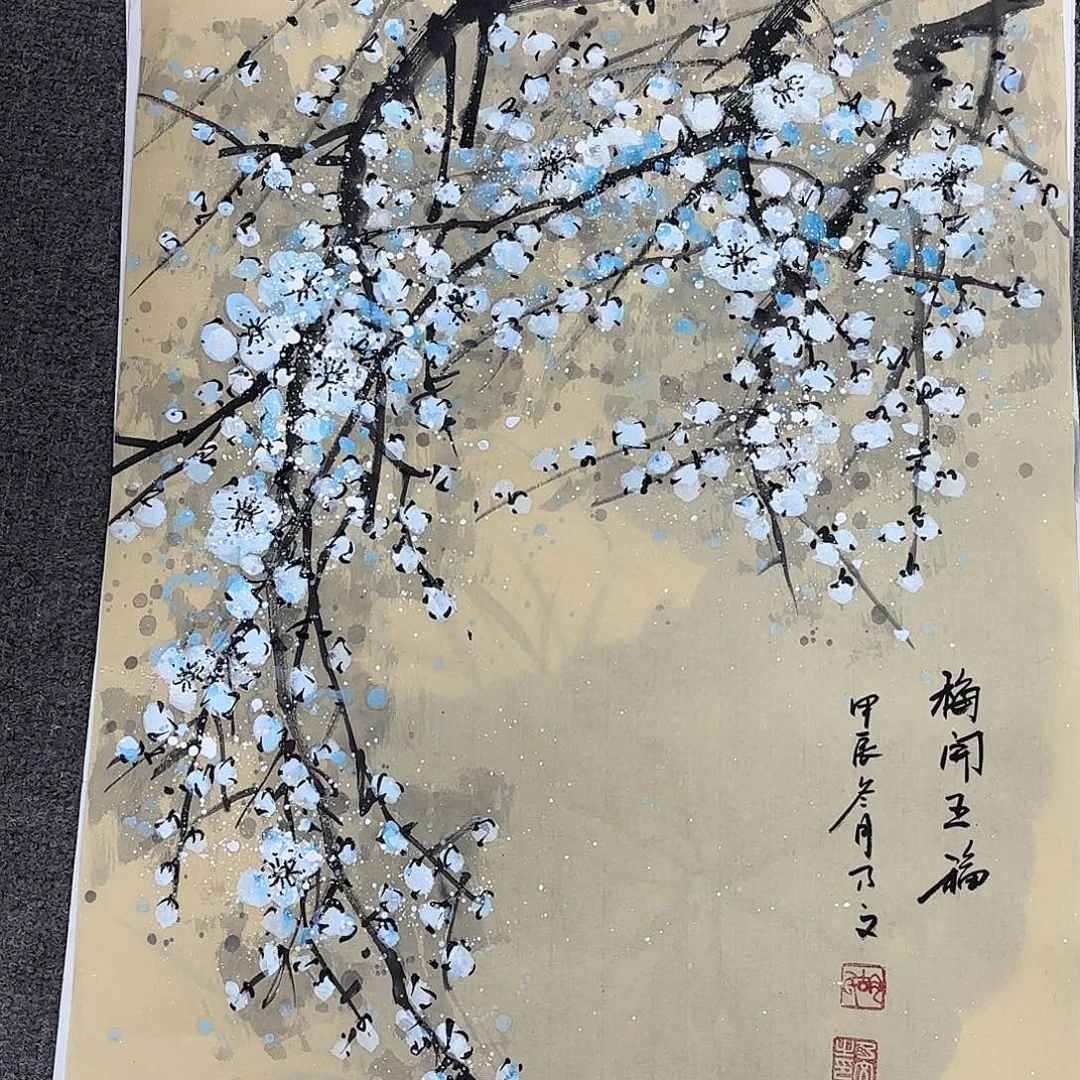 梅開五福
甲辰冬月乃文